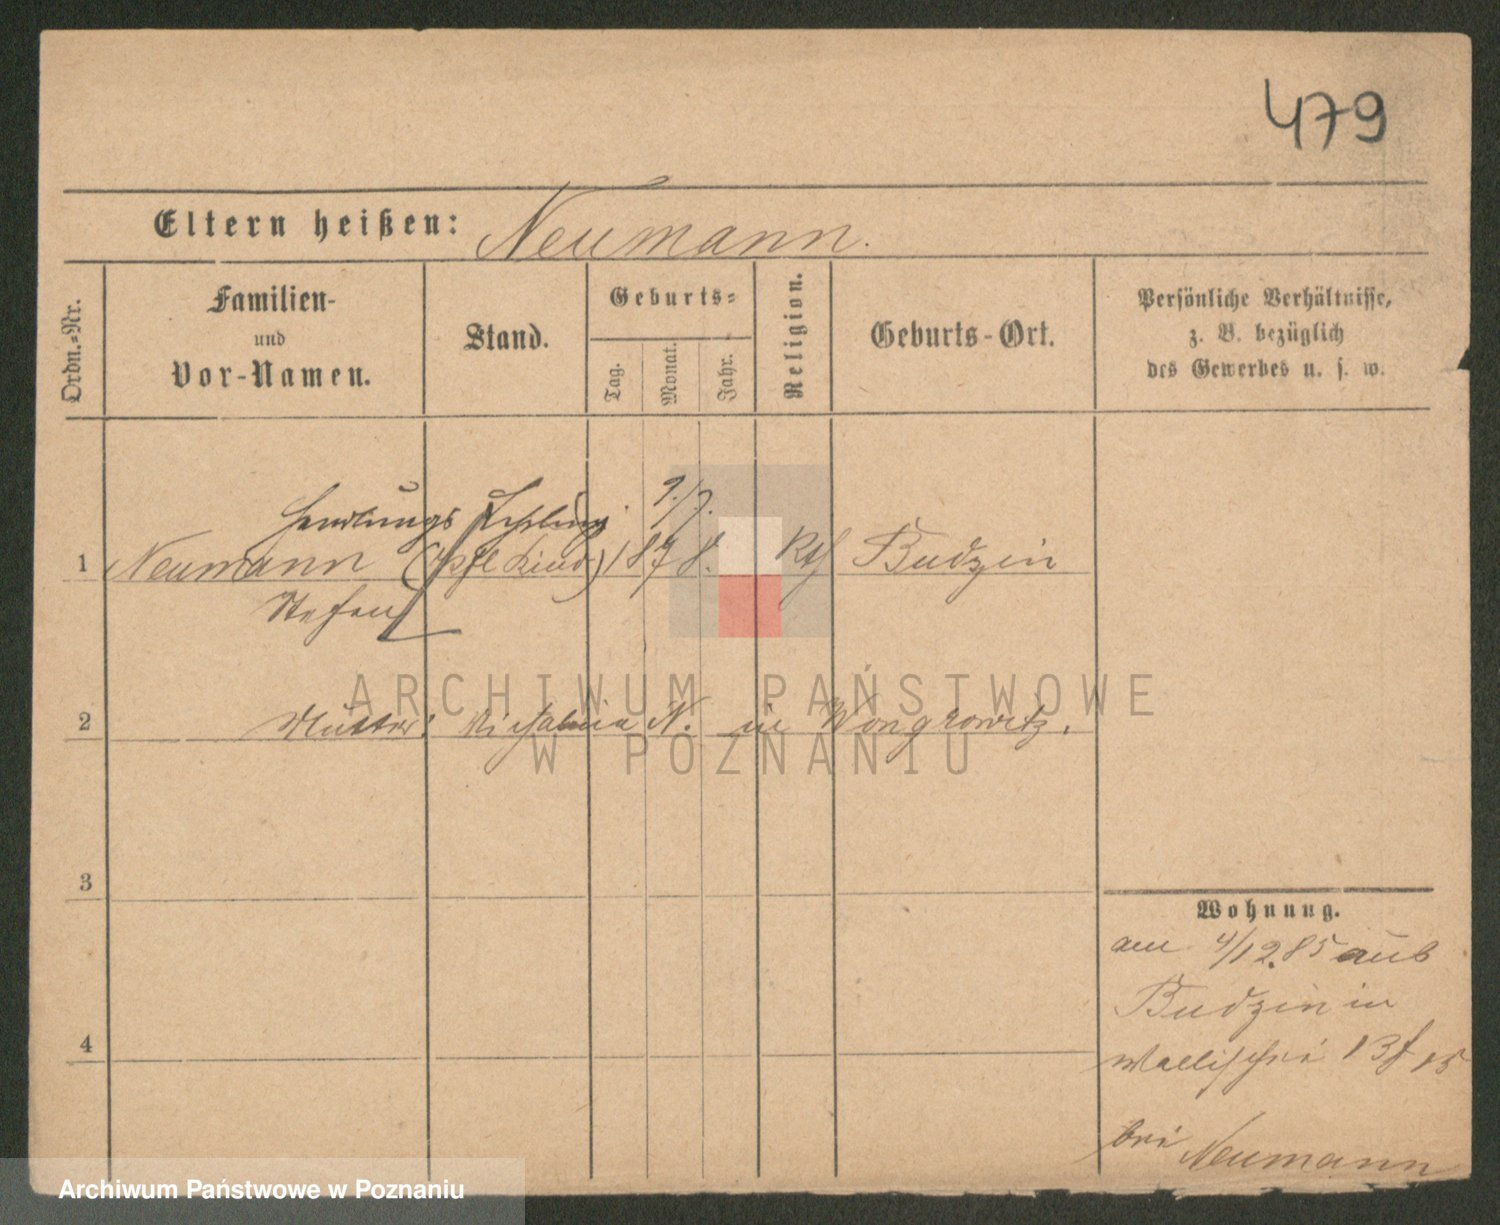 479
Eltern heißen: Neumann.
Ordn.-Nr.
Familien-
und
Vor-Namen.
Stand.
Geburts-
Tag.
Monat.
Jahr.
Religion.
Geburts-Ort.
Persönliche Verhältnisse,
z. B. bezüglich
des Gewerbes u. s. w.
Handlungs Lehrling 9./7.
1 Neumann (Pfl Kind) 1878. Kth Budzin
Stefan
2 Mutter: N. in Wongrowitz.
3
4
Wohnung.
am 4/12.85 aus
Budzin in
Wallischei 13
bei Neumann
ARCHIWUM PAŃSTWOWE
W POZNANIU
Archiwum Państwowe w Poznaniu